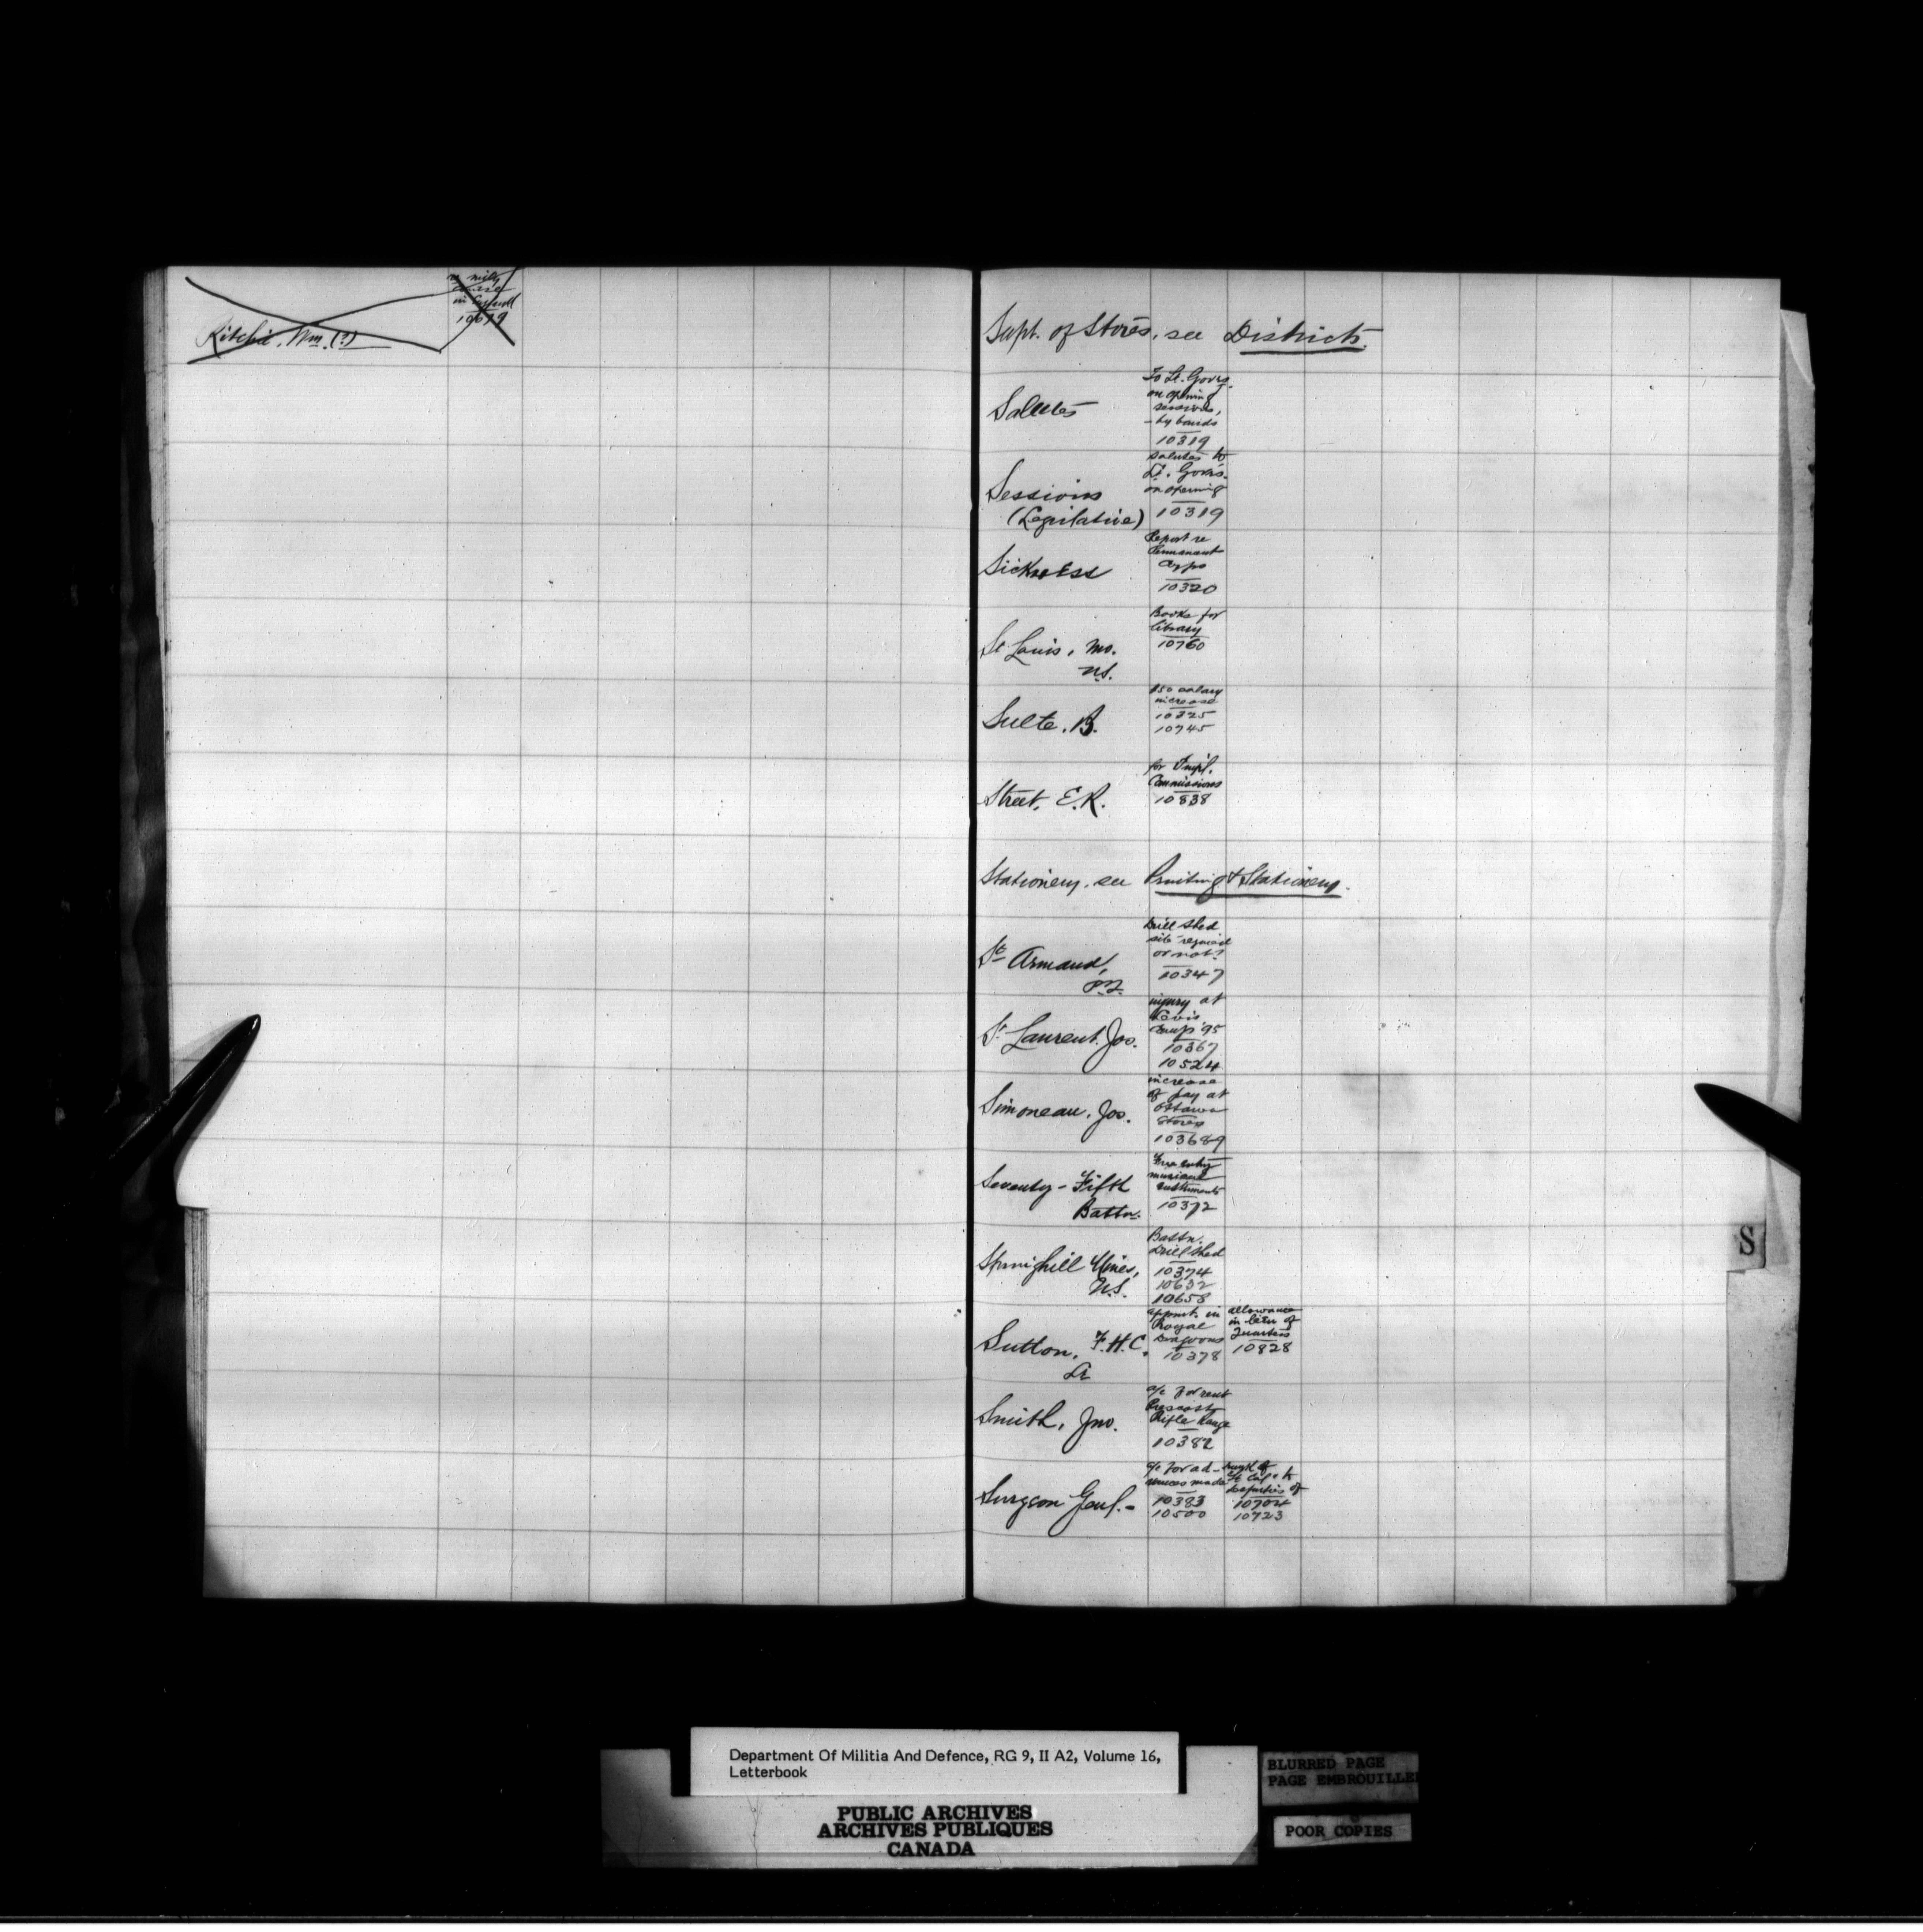 Ritchie, Wm. (?)
re mily
in
10679
Supt. of Stores, see Districts.
Salutes
To Lt. Govrs.
on opening
sessions,
- by bands
10319
Sessions
(Legislative)
salutes to
Lt. Govrs.
on opening
10319
Sickness
Report re
Permanent
Corps
10320
St Louis, Mo.
U.S.
Books for
library
10760
Sulte, B.
$50 salary
increase
10325
10745
Street, E.R.
for Impl.
Commissions
10838
Stationery, see Printing & Stationery.
St Armand,
P.Q.
Drill shed
site required
or not?
10347
St Laurent, Jos.
injury at
Levis
Camp '95
10367
10524
Simoneau, Jos.
increase
of pay at
Ottawa
Stores
103689
Seventy-Fifth
Battn.
Free entry
musical
instruments
10372
Springhill Mines,
N.S.
Battn.
Drill shed
10374
10632
10658
Sutton, F.H.C.
Lt
appmt. in
Royal
Dragoons
10378
allowance
in lieu of
Quarters
10828
Smith, Jno.
a/c for rent
Prescott
Rifle Range
10382
Surgeon Genl.-
a/c for ad-
vances made
10383
10500
Lt Col. to
Deputies of
10704
10723
S
Department Of Militia And Defence, RG 9, II A2, Volume 16,
Letterbook
PUBLIC ARCHIVES
ARCHIVES PUBLIQUES
CANADA
BLURRED PAGE
PAGE EMBROUILLE
POOR COPIES